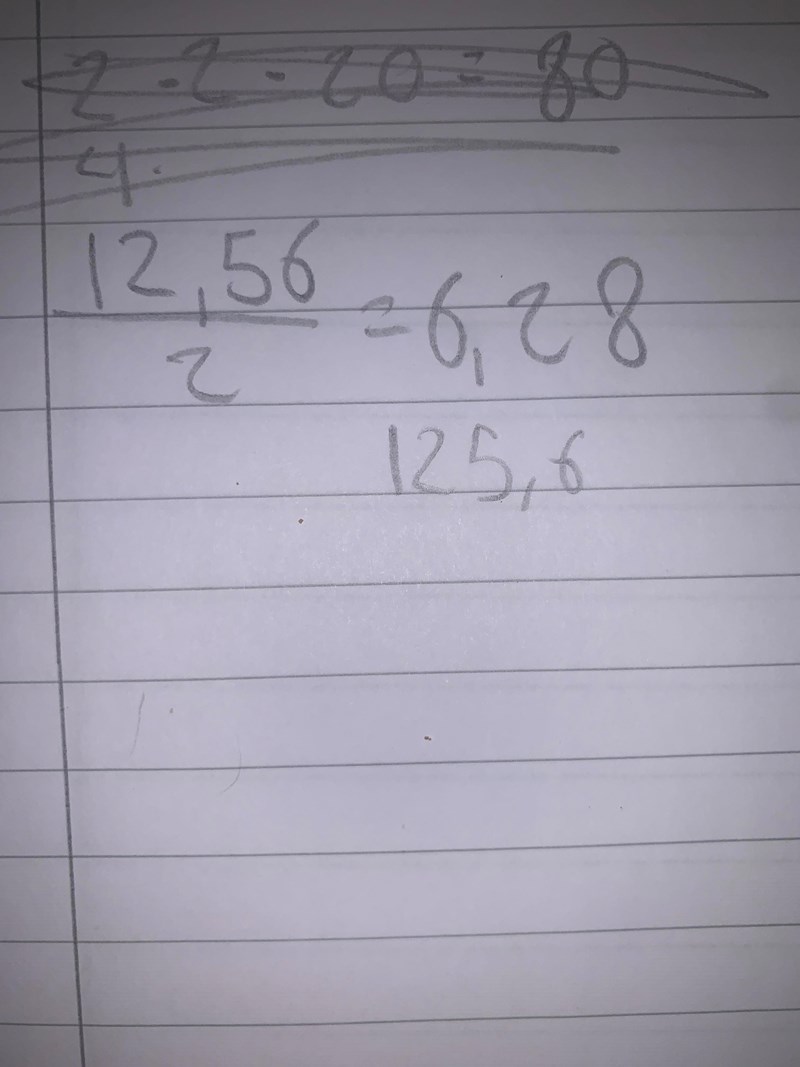 2 · 2 · 20 = 80
4.
12,56
2
= 6,28
125,6